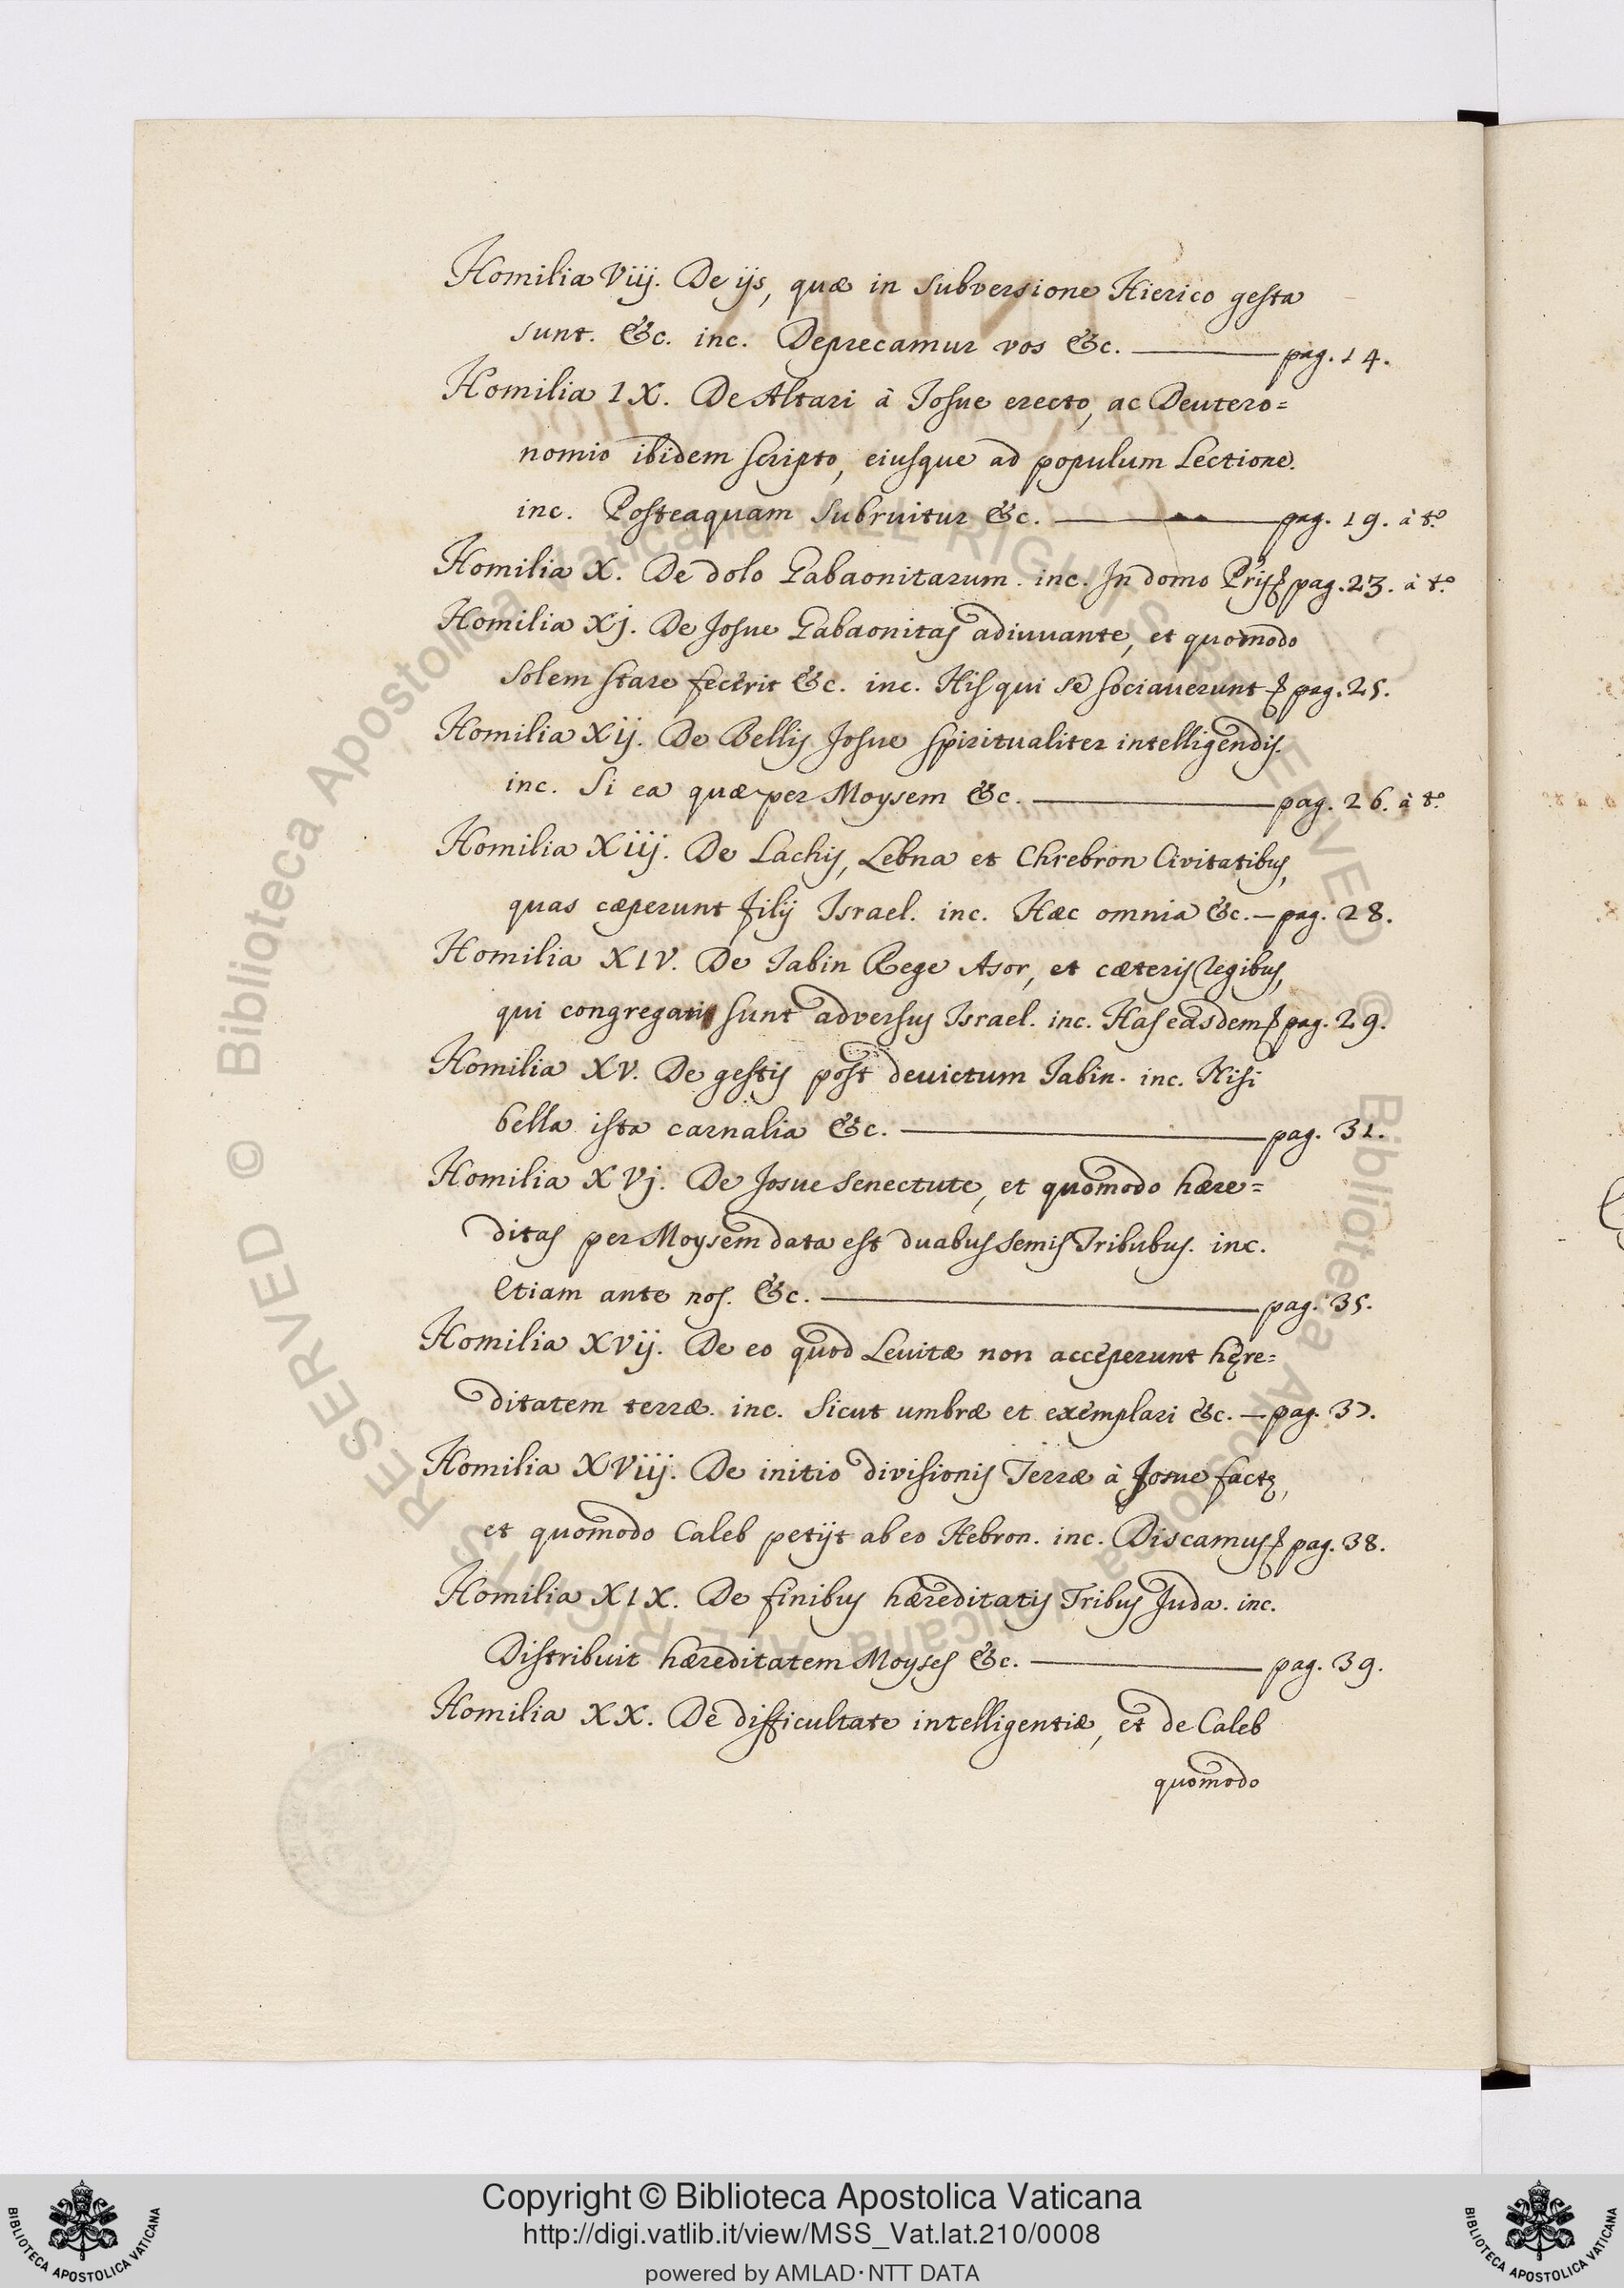 Homilia Viij. De ijs, quæ in subversione Hierico gesta
sunt. &c. inc. Deprecamur vos &c. — pag. 14.
Homilia IX. De Altari à Josue erecto, ac Deutero=
nomio ibidem scripto, eiusque ad populum Lectione.
inc. Posteaquam subruitur &c. — pag. 19. à t.º
Homilia X. De dolo Gabaonitarum. inc. In domo pag. 23. à t.º
Homilia Xj. De Josue Gabaonitas adiuuante, et quomodo
Solem stare fecerit &c. inc. His qui se sociauerunt & pag. 25.
Homilia Xij. De Bellis Josue spiritualiter intelligendis.
inc. Si ea quæ per Moysem &c. — pag. 26. à t.º
Homilia Xiij. De Lachis, Lebna et Chrebron Civitatibus,
quas cæperunt filij Israel. inc. Hæc omnia &c. — pag. 28.
Homilia XIV. De Jabin Rege Asor, et cæteris Regibus,
qui congregati sunt adversus Israel. inc. Has easdem & pag. 29.
Homilia XV. De gestis post deuictum Jabin. inc. Nisi
bella ista carnalia &c. — pag. 31.
Homilia XVj. De Josue Senectute, et quomodo hære=
ditas per Moysem data est duabus semis Tribubus. inc.
Etiam ante nos. &c. — pag. 35.
Homilia XVij. De eo quod Leuitæ non acceperunt hęre=
ditatem terræ. inc. Sicut umbræ et exemplari &c. — pag. 37.
Homilia XViij. De initio divisionis Terræ à Josue factę,
et quomodo Caleb petijt ab eo Hebron. inc. Discamus & pag. 38.
Homilia XIX. De finibus hæreditatis Tribus Juda. inc.
Distribuit hæreditatem Moyses &c. — pag. 39.
Homilia XX. De difficultate intelligentiæ, et de Caleb
quomodo
© Biblioteca Apostolica Vaticana ALL RIGHTS RESERVED
© Biblioteca Apostolica Vaticana ALL RIGHTS RESERVED
Copyright © Biblioteca Apostolica Vaticana
http://digi.vatlib.it/view/MSS_Vat.lat.210/0008
powered by AMLAD·NTT DATA
BIBLIOTECA APOSTOLICA VATICANA
BIBLIOTECA APOSTOLICA VATICANA